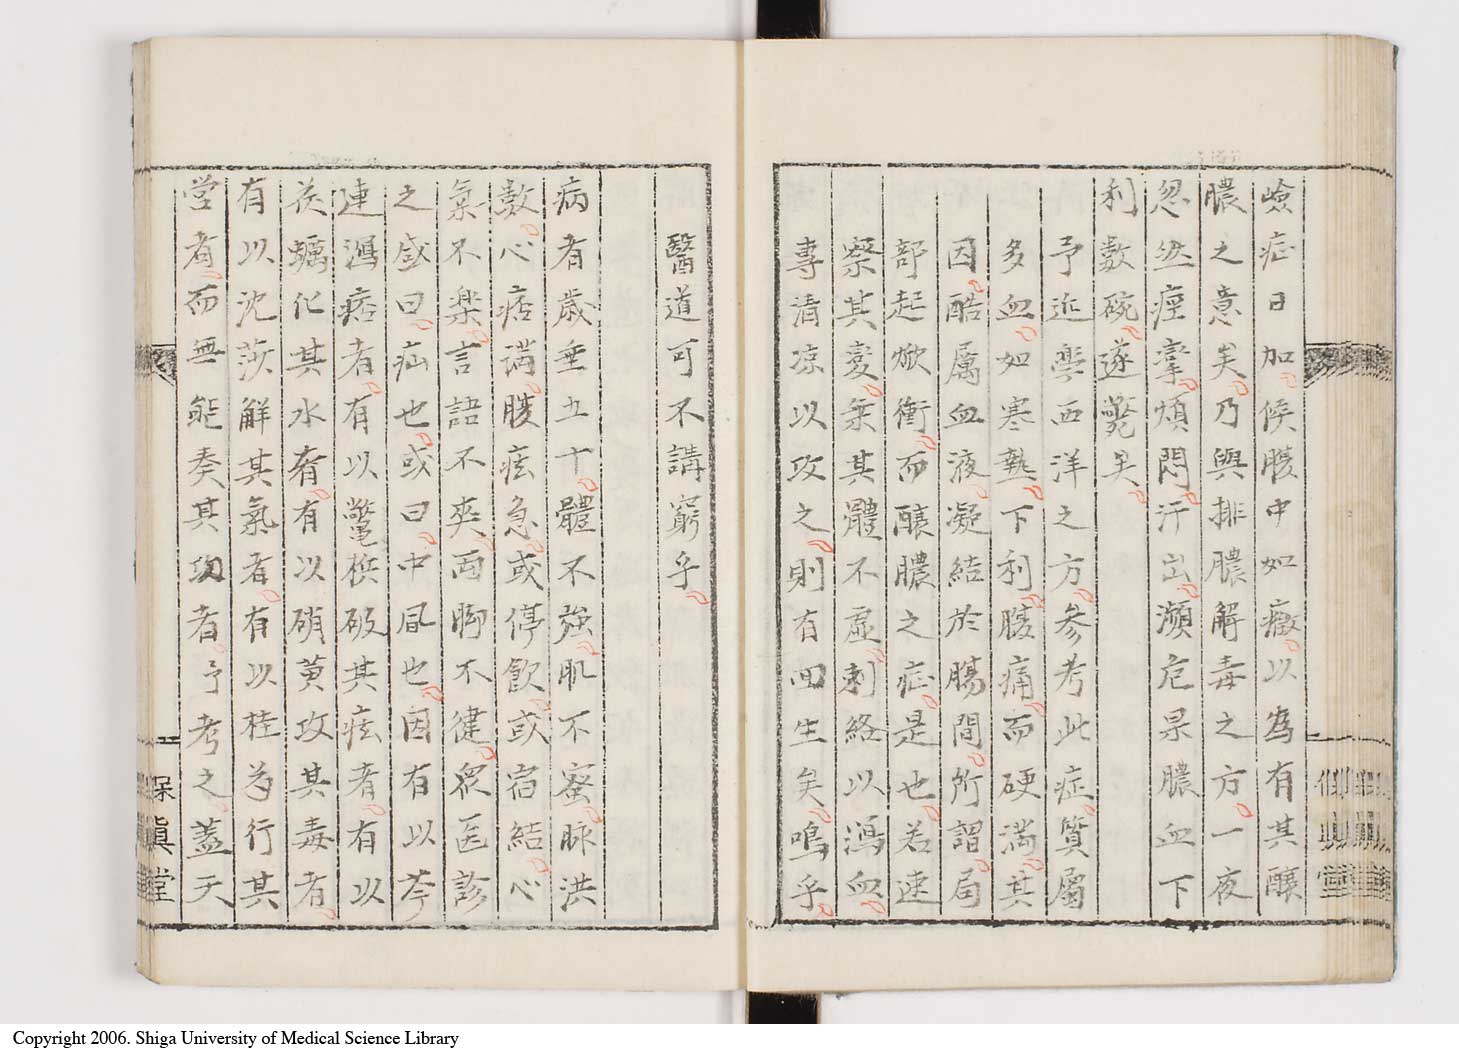 嶮症日加候腹中如癥以為有其釀
膿之意矣乃與排膿解毒之方一夜
忽然痙攣煩悶汗出瀕危果膿血下
利數碗遂斃矣
予近學西洋之方參考此症質屬
多血如寒熱下利腹痛而硬滿其
因酷厲血液凝結於腸間所謂局
部起焮衝而釀膿之症是也若速
察其變乘其體不虛刺絡以瀉血
專清凉以攻之則有回生矣嗚乎
醫道可不講窮乎
病者歳垂五十體不強肌不蜜脉洪
數心痞満腹痃急或停飲或宿結心
氣不樂言語不爽両脚不健衆医診
之惑曰疝也或曰中風也因有以苓
連瀉痞者有以鼈檳破其痃者有以
茯蠣化其水者有以硝黄攻其毒者
有以沈莎解其氣者有以桂為行其
營者而無能奏其功者予考之蓋天
保眞堂
Copyright 2006. Shiga University of Medical Science Library